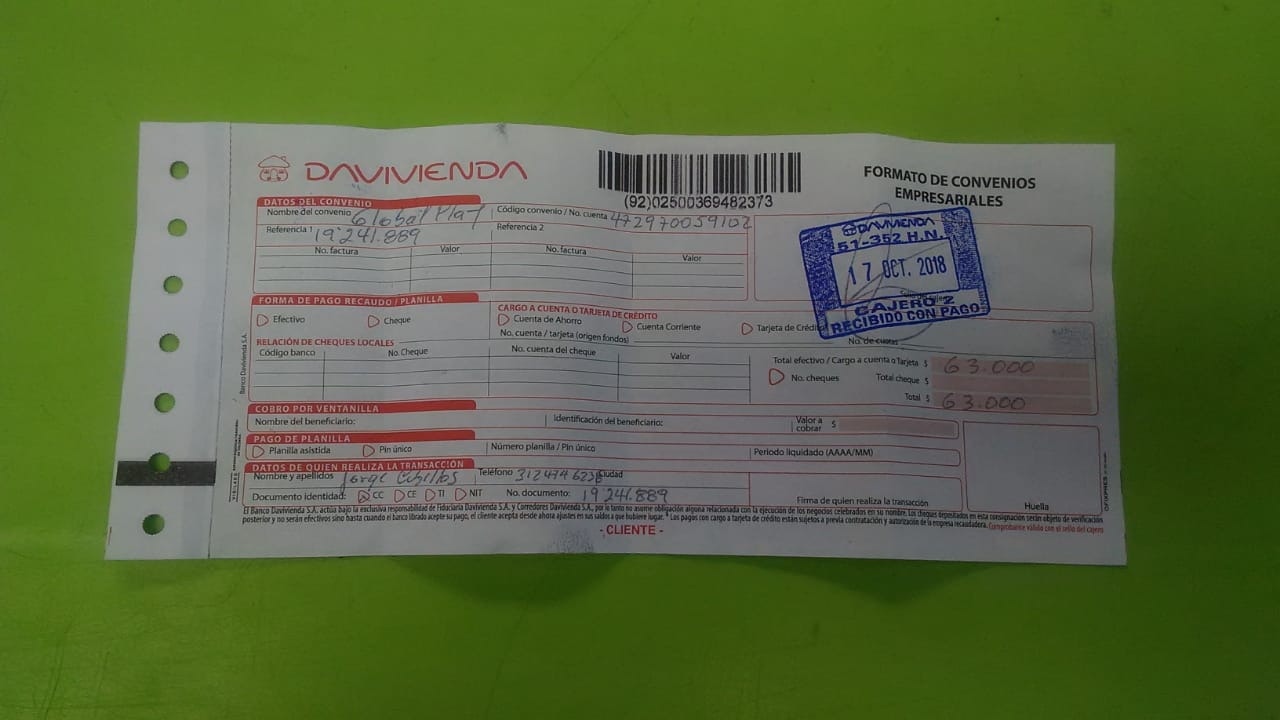 DAVIVIENDA
(92)02500369482373
FORMATO DE CONVENIOS
EMPRESARIALES
DATOS DEL CONVENIO
Nombre del convenio Global Plat
Código convenio / No. cuenta 472970059102
Referencia 1 19241.889
Referencia 2
No. factura Valor No. factura Valor
DAVIVIENDA
51-352 H.N.
17 OCT. 2018
CAJERO 2
RECIBIDO CON PAGO
FORMA DE PAGO RECAUDO / PLANILLA
Efectivo Cheque
CARGO A CUENTA O TARJETA DE CRÉDITO
Cuenta de Ahorro Cuenta Corriente Tarjeta de Crédito
No. cuenta / tarjeta (origen fondos) No. de cuotas
RELACIÓN DE CHEQUES LOCALES
Código banco No. Cheque No. cuenta del cheque Valor
Total efectivo / Cargo a cuenta o Tarjeta $ 63.000
No. cheques Total cheque $
Total $ 63.000
Banco Davivienda S.A.
COBRO POR VENTANILLA
Nombre del beneficiario: Identificación del beneficiario: Valor a cobrar $
PAGO DE PLANILLA
Planilla asistida Pin único Número planilla / Pin único Periodo liquidado (AAAA/MM)
DATOS DE QUIEN REALIZA LA TRANSACCIÓN
Nombre y apellidos Jorge Teléfono Ciudad
Documento identidad: CC CE TI NIT No. documento: 19241.889
Firma de quien realiza la transacción
Huella
El Banco Davivienda S.A. actúa bajo la exclusiva responsabilidad de Fiduciaria Davivienda S.A. y Corredores Davivienda S.A., por lo tanto no asume obligación alguna relacionada con la ejecución de los negocios celebrados en su nombre. Los cheques depositados en esta consignación serán objeto de verificación
posterior y no serán efectivos sino hasta cuando el banco librado acepte su pago, el cliente acepta desde ahora ajustes en sus saldos a que hubiere lugar. * Los pagos con cargo a tarjeta de crédito están sujetos a previa contratación y autorización de la empresa recaudadora. Comprobante válido con el sello del cajero
- CLIENTE -